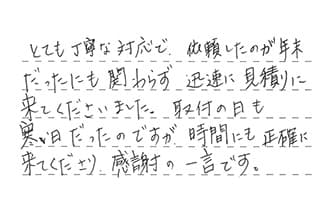 とても丁寧な対応で、依頼したのが年末
だったにも関わらず 迅速に見積りに
来てくださいました。取付の日も
寒い日だったのですが、時間にも正確に
来てくださり、感謝の一言です。